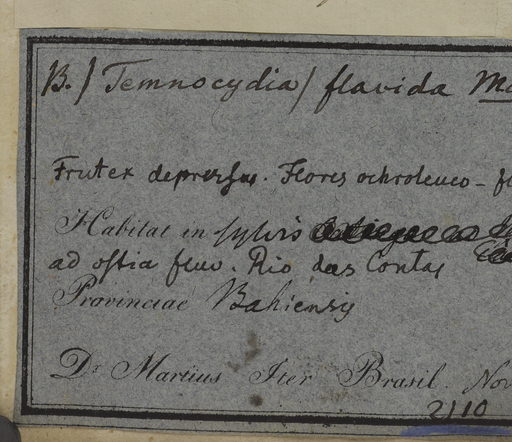 B./ Temnocydia/ flavida
Frutex depressus. Flores ochroleuco-
Habitat in sylvis
ad ostia fluv. Rio das Contas
Provinciae Bahiensis
Dr. Martius Iter Brasil. Nov
2110